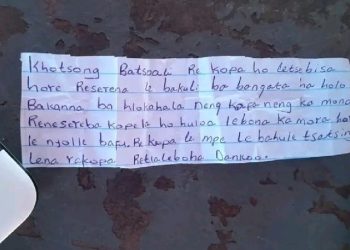 Khotsong Batsoali Re kopa ho letsebisa
hore Reserena le bakuli ba bangata ha holo
Bakanna ba hlokahala neng kapa neng ka mona
Renesereba kopele ka huloa lebona ka mora hor
le ngolle bafu. Re kopa le mpe le bahule tsatsing
Lena rakopa Realeboha Dankoo.